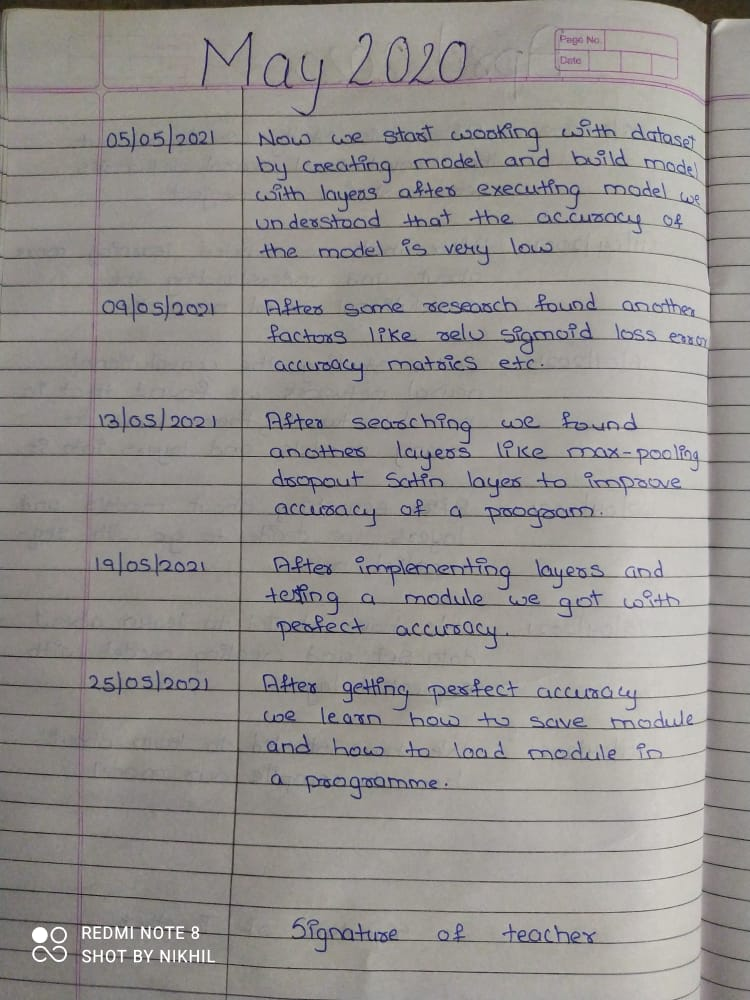 May 2020
Page No.
Date
05/05/2021 Now we start working with dataset
by creating model and build model
with layers after executing model we
understood that the accuracy of
the model is very low
09/05/2021 After some research found another
factors like relu sigmoid loss error
accuracy matrics etc.
13/05/2021 After searching we found
another layers like max-pooling
dropout Satin layer to improve
accuracy of a program.
19/05/2021 After implementing layers and
testing a module we got with
perfect accuracy.
25/05/2021 After getting perfect accuracy
we learn how to save module
and how to load module in
a programme.
Signature of teacher
REDMI NOTE 8
SHOT BY NIKHIL